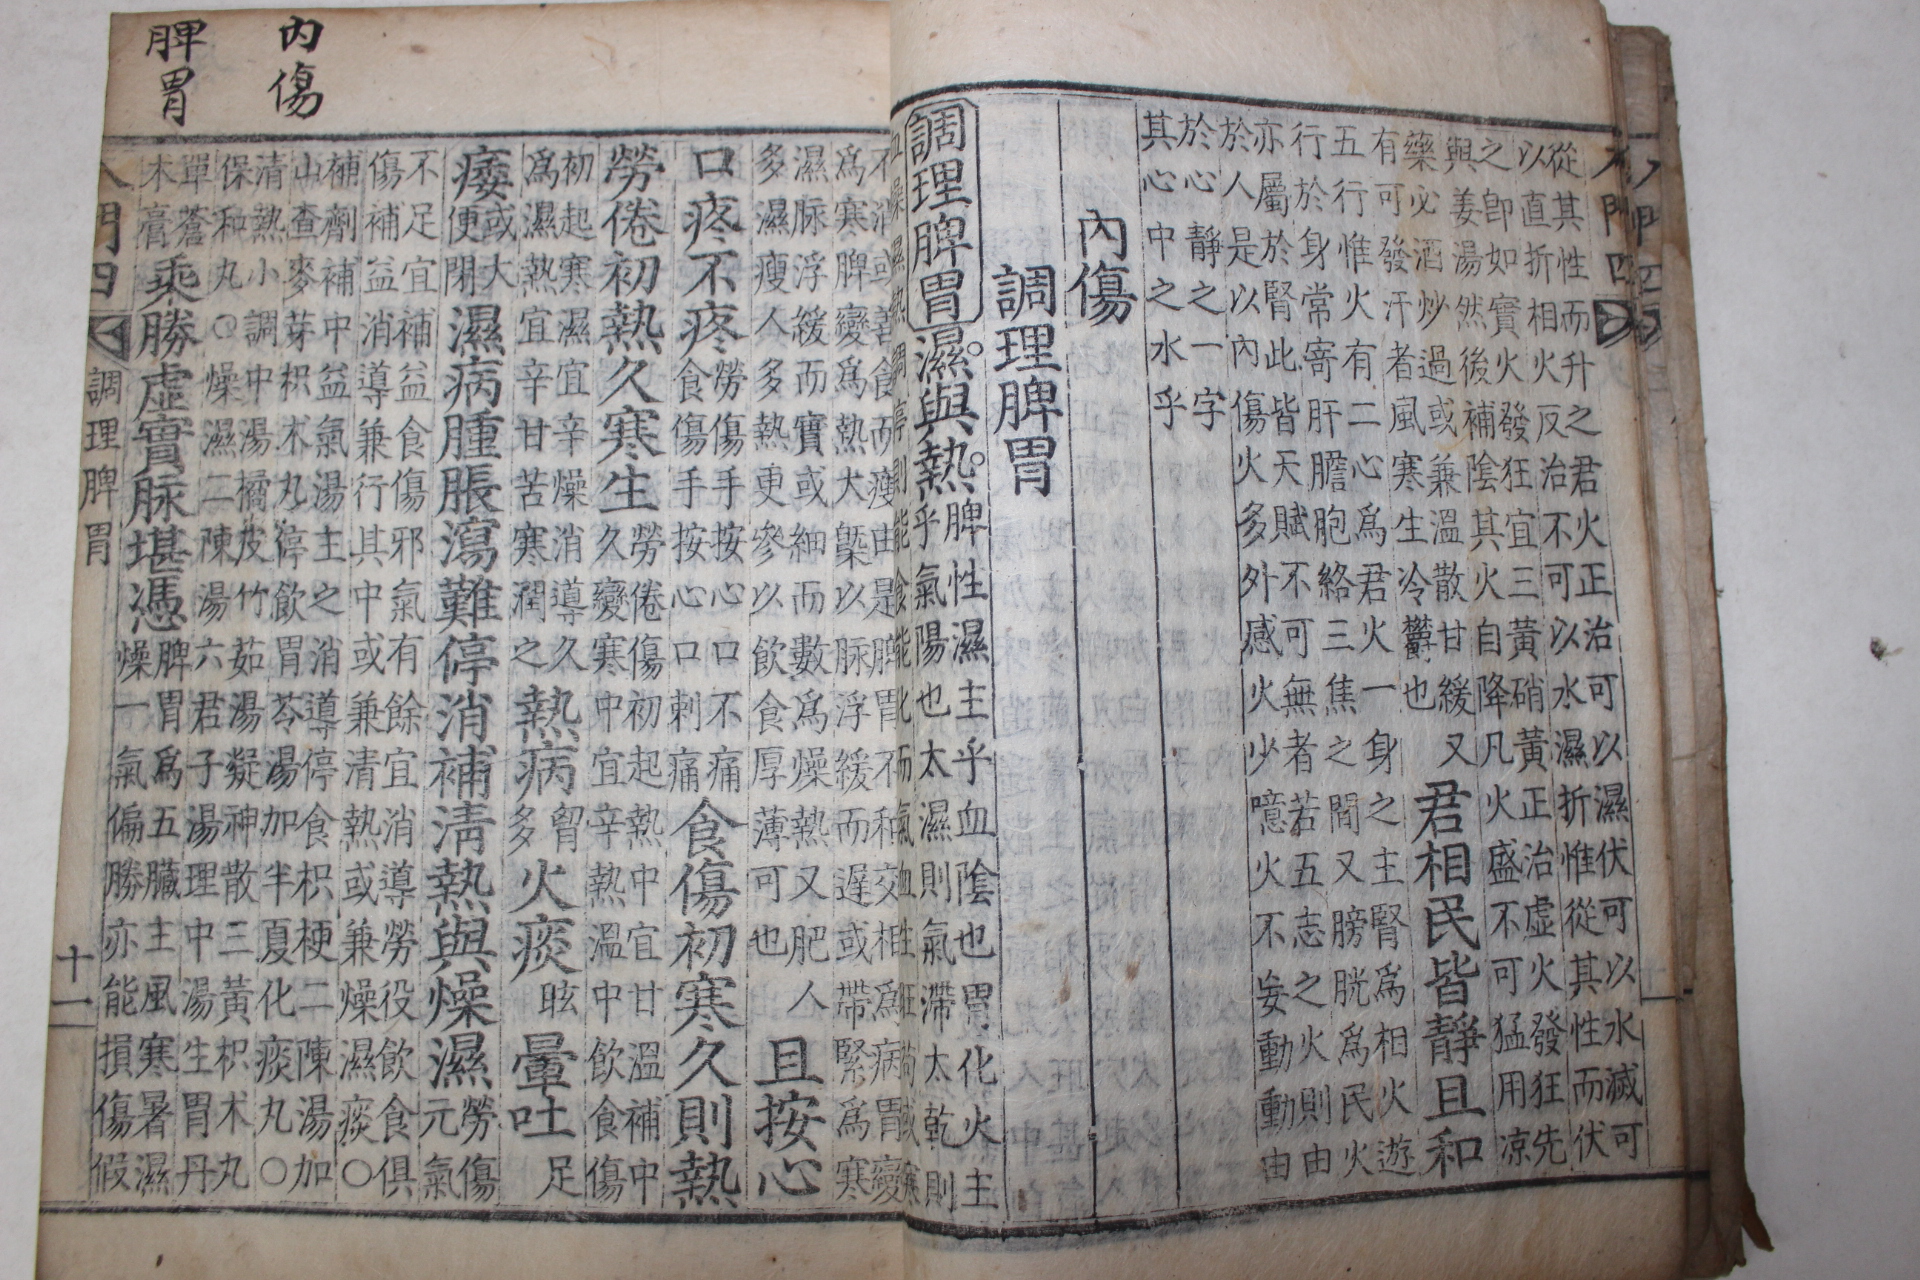 從其性而升之君火正治可以濕伏可以水滅可
以直折相火反治不可以水濕折惟從其性而伏
之卽如實火發狂宜三黃硝黃正治虛火發狂先
與姜湯然後補陰其火自降凡火盛不可猛用凉
藥必酒炒過或兼溫散甘緩又
有可發汗者風寒生冷欝也
君相民皆靜且和
五行惟火有二心爲君火一身之主腎爲相火遊
行於身常寄肝膽胞絡三焦之間又膀胱爲民火
亦屬於腎此皆天賦不可無者若五志之火則由
於人是以內傷火多外感火少噫火不妄動動由
於心靜之一字
其心中之水乎
內傷
調理脾胃
調理脾胃濕與熱
脾性濕主乎血陰也胃化火主
乎氣陽也太濕則氣滯太乾則
血燥濕熱調停則能食能化而氣血旺苟或寒
不消或善食而瘦由是脾胃不和交相爲病胃變
爲寒脾變爲熱大槩以脉浮緩而遲或帶緊爲寒
濕脉浮緩而實或細而數爲燥熱又肥人
多濕瘦人多熱更參以飲食厚薄可也
且按心
口疼不疼
勞傷手按心口不痛
食傷手按心口刺痛
食傷初寒久則熱
勞倦初熱久寒生
勞倦傷初起熱中宜甘溫補中
久變寒中宜辛熱溫中飲食傷
初起寒濕宜辛燥消導久
爲濕熱宜辛甘苦寒潤之
熱病
多
火痰
眩
暈吐
足
痿
或大
便閉
濕病腫脹瀉難停消補淸熱與燥濕
勞傷
元氣
不足宜補益食傷邪氣有餘宜消導勞役飲食俱
傷補益消導兼行其中或兼清熱或兼燥濕痰〇
補劑補中益氣湯主之消導停食枳梗二陳湯加
山查麥芽枳朮丸停飲胃苓湯加半夏化痰丸〇
清熱小調中湯橘皮竹茹湯凝神散三黃枳朮丸
保和丸〇燥濕二陳湯六君子湯理中湯生胃丹
單蒼
木膏
乘勝虛實脉堪憑
脾胃爲五臟主風寒暑濕
燥一氣偏勝亦能損傷假
入門四
調理脾胃
十一
內傷
脾胃